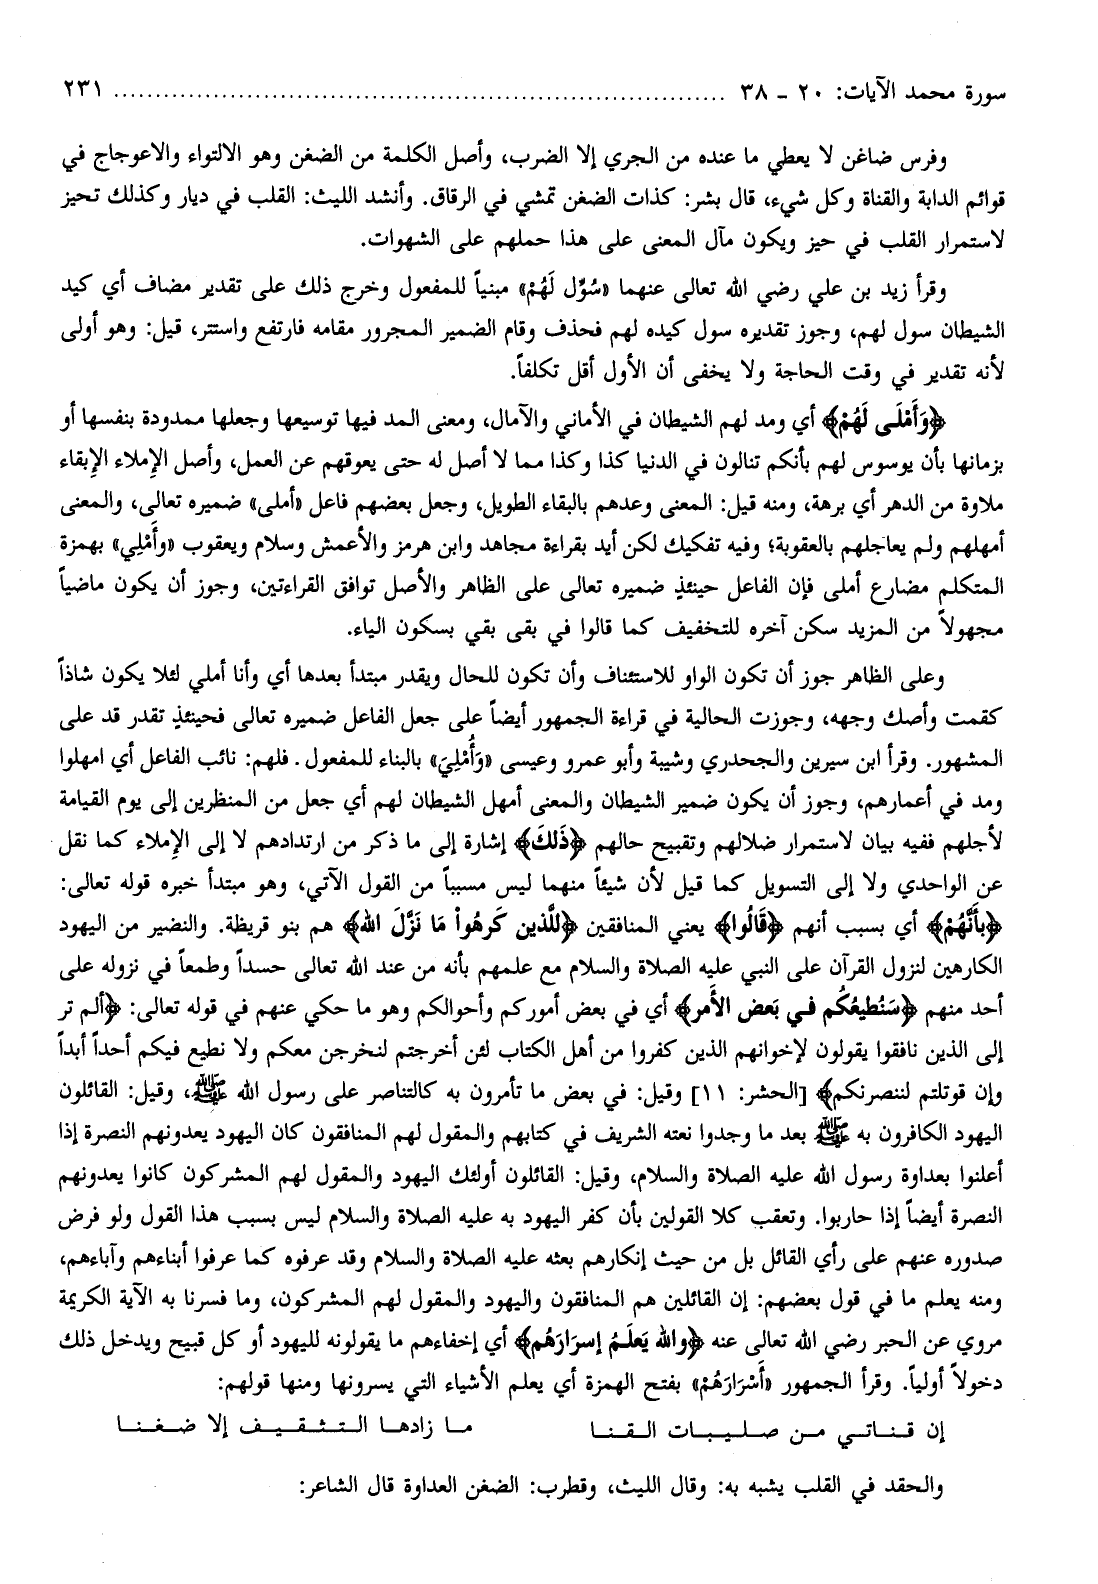 سورة محمد الآيات: ٢٠ ـ ٣٨ ........................................................................ ٢٣١
وفرس ضاغن لا يعطي ما عنده من الجري إلا الضرب، وأصل الكلمة من الضغن وهو الالتواء والاعوجاج في
قوائم الدابة والقناة وكل شيء، قال بشر: كذات الضغن تمشي في الرقاق. وأنشد الليث: القلب في ديار وكذلك تحيز
لاستمرار القلب في حيز ويكون مآل المعنى على هذا حملهم على الشهوات.
وقرأ زيد بن علي رضي الله تعالى عنهما «سُوِّل لَهُمْ» مبنياً للمفعول وخرج ذلك على تقدير مضاف أي كيد
الشيطان سول لهم، وجوز تقديره سول كيده لهم فحذف وقام الضمير المجرور مقامه فارتفع واستتر، قيل: وهو أولى
لأنه تقدير في وقت الحاجة ولا يخفى أن الأول أقل تكلفاً.
﴿وَأَمْلَى لَهُمْ﴾ أي ومد لهم الشيطان في الأماني والآمال، ومعنى المد فيها توسيعها وجعلها ممدودة بنفسها أو
بزمانها بأن يوسوس لهم بأنكم تنالون في الدنيا كذا وكذا مما لا أصل له حتى يعوقهم عن العمل، وأصل الإملاء الإبقاء
ملاوة من الدهر أي برهة، ومنه قيل: المعنى وعدهم بالبقاء الطويل، وجعل بعضهم فاعل «أملى» ضميره تعالى، والمعنى
أمهلهم ولم يعاجلهم بالعقوبة؛ وفيه تفكيك لكن أيد بقراءة مجاهد وابن هرمز والأعمش وسلام ويعقوب «وأَمْلِي» بهمزة
المتكلم مضارع أملى فإن الفاعل حينئذٍ ضميره تعالى على الظاهر والأصل توافق القراءتين، وجوز أن يكون ماضياً
مجهولاً من المزيد سكن آخره للتخفيف كما قالوا في بقى بقي بسكون الياء.
وعلى الظاهر جوز أن تكون الواو للاستئناف وأن تكون للحال ويقدر مبتدأ بعدها أي وأنا أملي لئلا يكون شاذاً
كقمت وأصك وجهه، وجوزت الحالية في قراءة الجمهور أيضاً على جعل الفاعل ضميره تعالى فحينئذٍ تقدر قد على
المشهور. وقرأ ابن سيرين والجحدري وشيبة وأبو عمرو وعيسى «وَأُمْلِيَ» بالبناء للمفعول. فلهم: نائب الفاعل أي امهلوا
ومد في أعمارهم، وجوز أن يكون ضمير الشيطان والمعنى أمهل الشيطان لهم أي جعل من المنظرين إلى يوم القيامة
لأجلهم ففيه بيان لاستمرار ضلالهم وتقبيح حالهم ﴿ذَلكَ﴾ إشارة إلى ما ذكر من ارتدادهم لا إلى الإملاء كما نقل
عن الواحدي ولا إلى التسويل كما قيل لأن شيئاً منهما ليس مسبباً من القول الآتي، وهو مبتدأ خبره قوله تعالى:
﴿بأَنَّهُمْ﴾ أي بسبب أنهم ﴿قَالُوا﴾ يعني المنافقين ﴿للَّذين كَرهُواْ مَا نَزَّلَ الله﴾ هم بنو قريظة. والنضير من اليهود
الكارهين لنزول القرآن على النبي عليه الصلاة والسلام مع علمهم بأنه من عند الله تعالى حسداً وطمعاً في نزوله على
أحد منهم ﴿سَنُطيعُكُم في بَعض الأَمر﴾ أي في بعض أموركم وأحوالكم وهو ما حكي عنهم في قوله تعالى: ﴿ألم تر
إلى الذين نافقوا يقولون لإخوانهم الذين كفروا من أهل الكتاب لئن أخرجتم لنخرجن معكم ولا نطيع فيكم أحداً أبداً
وإن قوتلتم لننصرنكم﴾ [الحشر: ١١] وقيل: في بعض ما تأمرون به كالتناصر على رسول الله ﷺ، وقيل: القائلون
اليهود الكافرون به ﷺ بعد ما وجدوا نعته الشريف في كتابهم والمقول لهم المنافقون كان اليهود يعدونهم النصرة إذا
أعلنوا بعداوة رسول الله عليه الصلاة والسلام، وقيل: القائلون أولئك اليهود والمقول لهم المشركون كانوا يعدونهم
النصرة أيضاً إذا حاربوا. وتعقب كلا القولين بأن كفر اليهود به عليه الصلاة والسلام ليس بسبب هذا القول ولو فرض
صدوره عنهم على رأي القائل بل من حيث إنكارهم بعثه عليه الصلاة والسلام وقد عرفوه كما عرفوا أبناءهم وآباءهم،
ومنه يعلم ما في قول بعضهم: إن القائلين هم المنافقون واليهود والمقول لهم المشركون، وما فسرنا به الآية الكريمة
مروي عن الحبر رضي الله تعالى عنه ﴿والله يَعلَمُ إسرَارَهُم﴾ أي إخفاءهم ما يقولونه لليهود أو كل قبيح ويدخل ذلك
دخولاً أولياً. وقرأ الجمهور «أَسْرَارَهُمْ» بفتح الهمزة أي يعلم الأشياء التي يسرونها ومنها قولهم:
إن قناتي من صليبات القنا ما زادها التثقيف إلا ضغنا
والحقد في القلب يشبه به: وقال الليث، وقطرب: الضغن العداوة قال الشاعر: